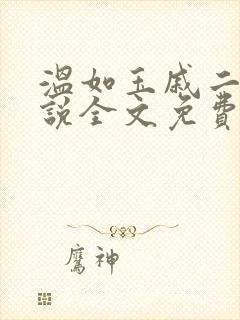 溫如玉戚二
說全文免費
鷹神